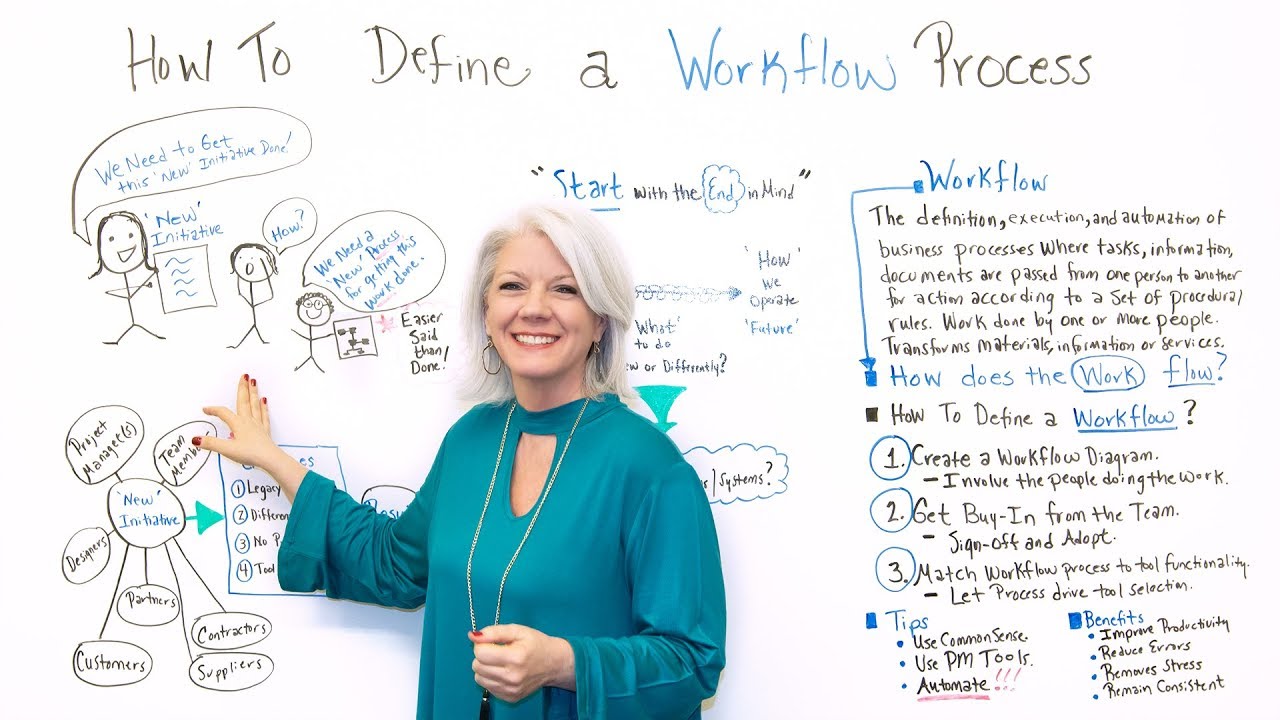 How To Define a Workflow Process
We Need to Get
this 'New' Initiative Done!
'NEW'
Initiative
How?
We Need a
'New' Process
for getting this
work done.
Easier
Said
than
Done!
"Start with the End in Mind"
'How'
We
Operate
'Future'
What'
to do
or Differently?
Project
Manager(s)
Team
'New'
Initiative
Designers
Partners
Contractors
Customers
Suppliers
1 Legacy
2
3 No
4 Tool
/ Systems?
Workflow
The definition, execution, and automation of
business processes where tasks, information,
documents are passed from one person to another
for action according to a set of procedural
rules. Work done by one or more people.
Transforms materials, information or services.
How does the Work flow?
How To Define a Workflow?
1. Create a Workflow Diagram.
- Involve the people doing the work.
2. Get Buy-In from the Team.
- Sign-off and Adopt.
3. Match Workflow process to tool functionality.
- Let Process drive tool selection.
Tips
• Use Common Sense.
• Use PM Tools.
• Automate!!!
Benefits
• Improve Productivity
• Reduce Errors
• Removes Stress
• Remain Consistent